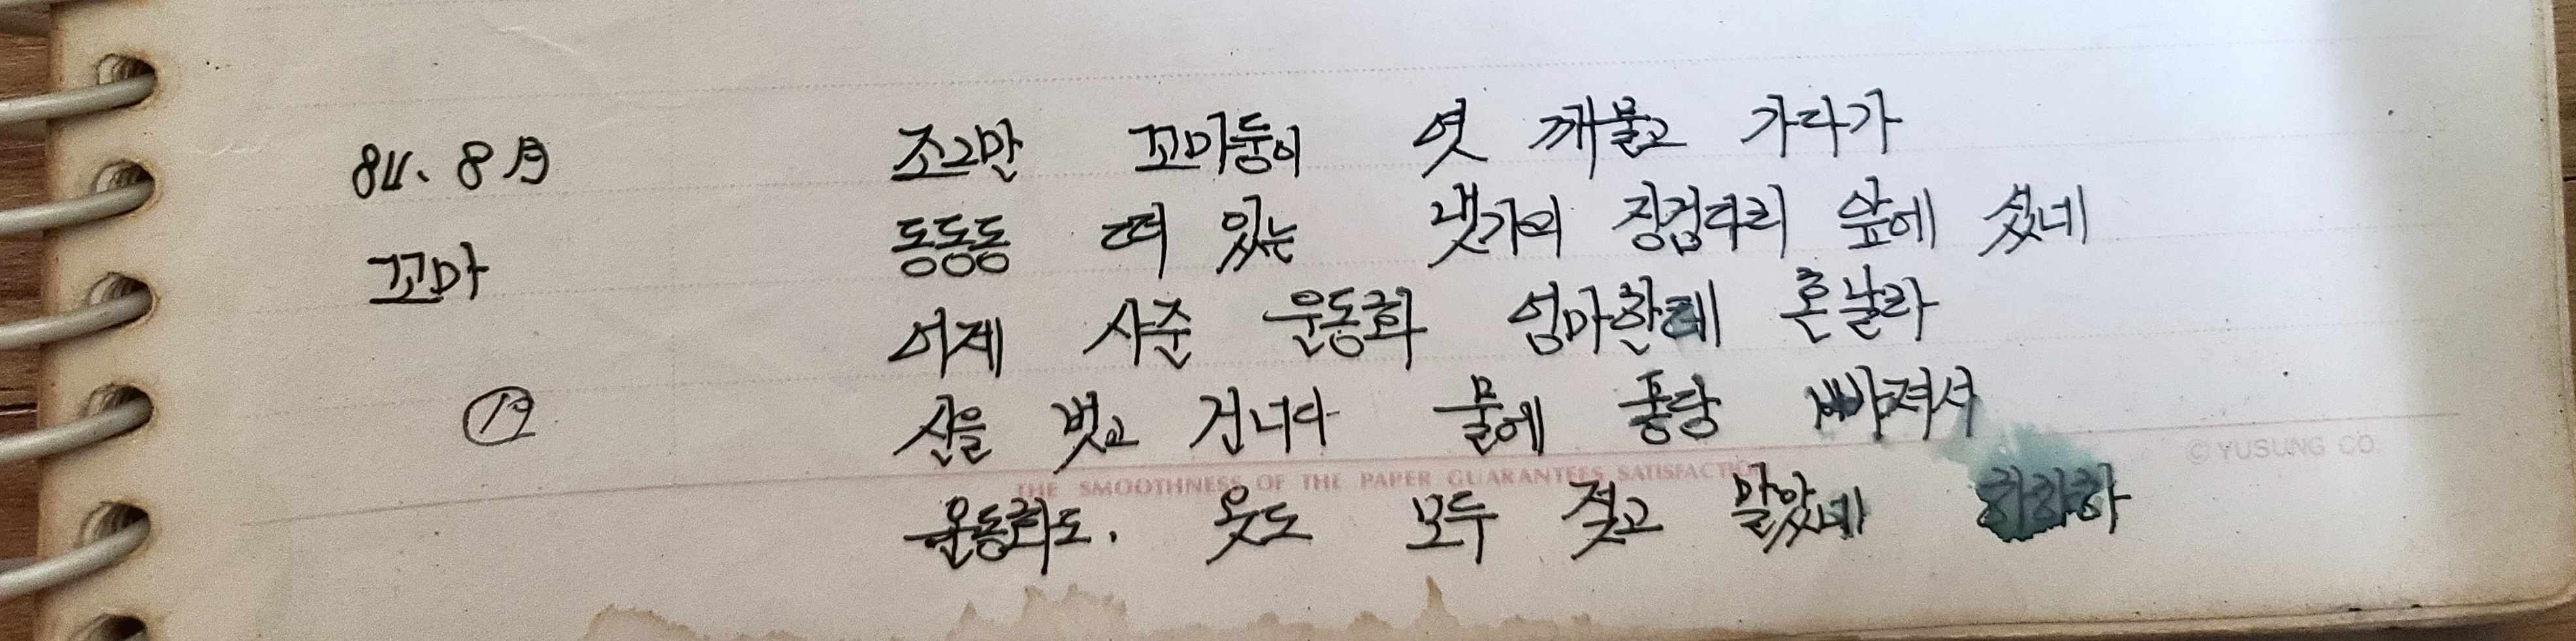 84. 8月
꼬마
조그만 꼬마둥이 엿 깨물고 가다가
동동동 떠 있는 냇가의 징검다리 앞에 섰네
어제 사준 운동화 엄마한테 혼날라
신을 벗고 건너다 물에 퐁당 빠져서
THE SMOOTHNESS OF THE PAPER GUARANTEES SATISFACTION
© YUSUNG CO.
운동화도. 옷도 모두 젖고 말았네 하하하